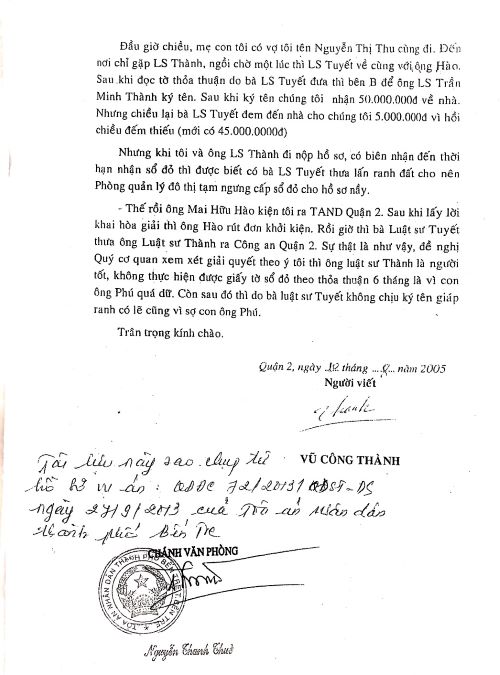 Đầu giờ chiều, mẹ con tôi có vợ tôi tên Nguyễn Thị Thu cùng đi. Đến
nơi chỉ gặp LS Thành, ngồi chờ một lúc thì LS Tuyết về cùng với ông Hào.
Sau khi đọc tờ thỏa thuận do bà LS Tuyết đưa thì bên B để ông LS Trần
Minh Thành ký tên. Sau khi ký tên chúng tôi nhận 50.000.000đ về nhà.
Nhưng chiều lại bà LS Tuyết đem đến nhà cho chúng tôi 5.000.000đ vì hồi
chiều đếm thiếu (mới có 45.000.0000đ)
Nhưng khi tôi và ông LS Thành đi nộp hồ sơ, có biên nhận đến thời
hạn nhận sổ đỏ thì được biết có bà LS Tuyết thưa lấn ranh đất cho nên
Phòng quản lý đô thị tạm ngưng cấp sổ đỏ cho hồ sơ nầy.
- Thế rồi ông Mai Hữu Hào kiện tôi ra TAND Quận 2. Sau khi lấy lời
khai hòa giải thì ông Hào rút đơn khởi kiện. Rồi giờ thì bà Luật sư Tuyết
thưa ông Luật sư Thành ra Công an Quận 2. Sự thật là như vậy, đề nghị
Quý cơ quan xem xét giải quyết theo ý tôi thì ông luật sư Thành là người
tốt, không thực hiện được giấy tờ sổ đỏ theo thỏa thuận 6 tháng là vì con
ông Phú quá dữ. Còn sau đó thì do bà luật sư Tuyết không chịu ký tên giáp
ranh có lẽ cũng vì sợ con ông Phú.
Trân trọng kính chào.
Quận 2, ngày 12 tháng ... năm 2005
Người viết
Thanh
VŨ CÔNG THÀNH
Tài liệu này sao chụp từ
hồ sơ vụ án: QĐĐC 72/2013/QĐST-DS
ngày 27/9/2013 của Tòa án nhân dân
thành phố Bến Tre
CHÁNH VĂN PHÒNG
TÒA ÁN NHÂN DÂN THÀNH PHỐ BẾN TRE
Nguyễn Thanh Thuở